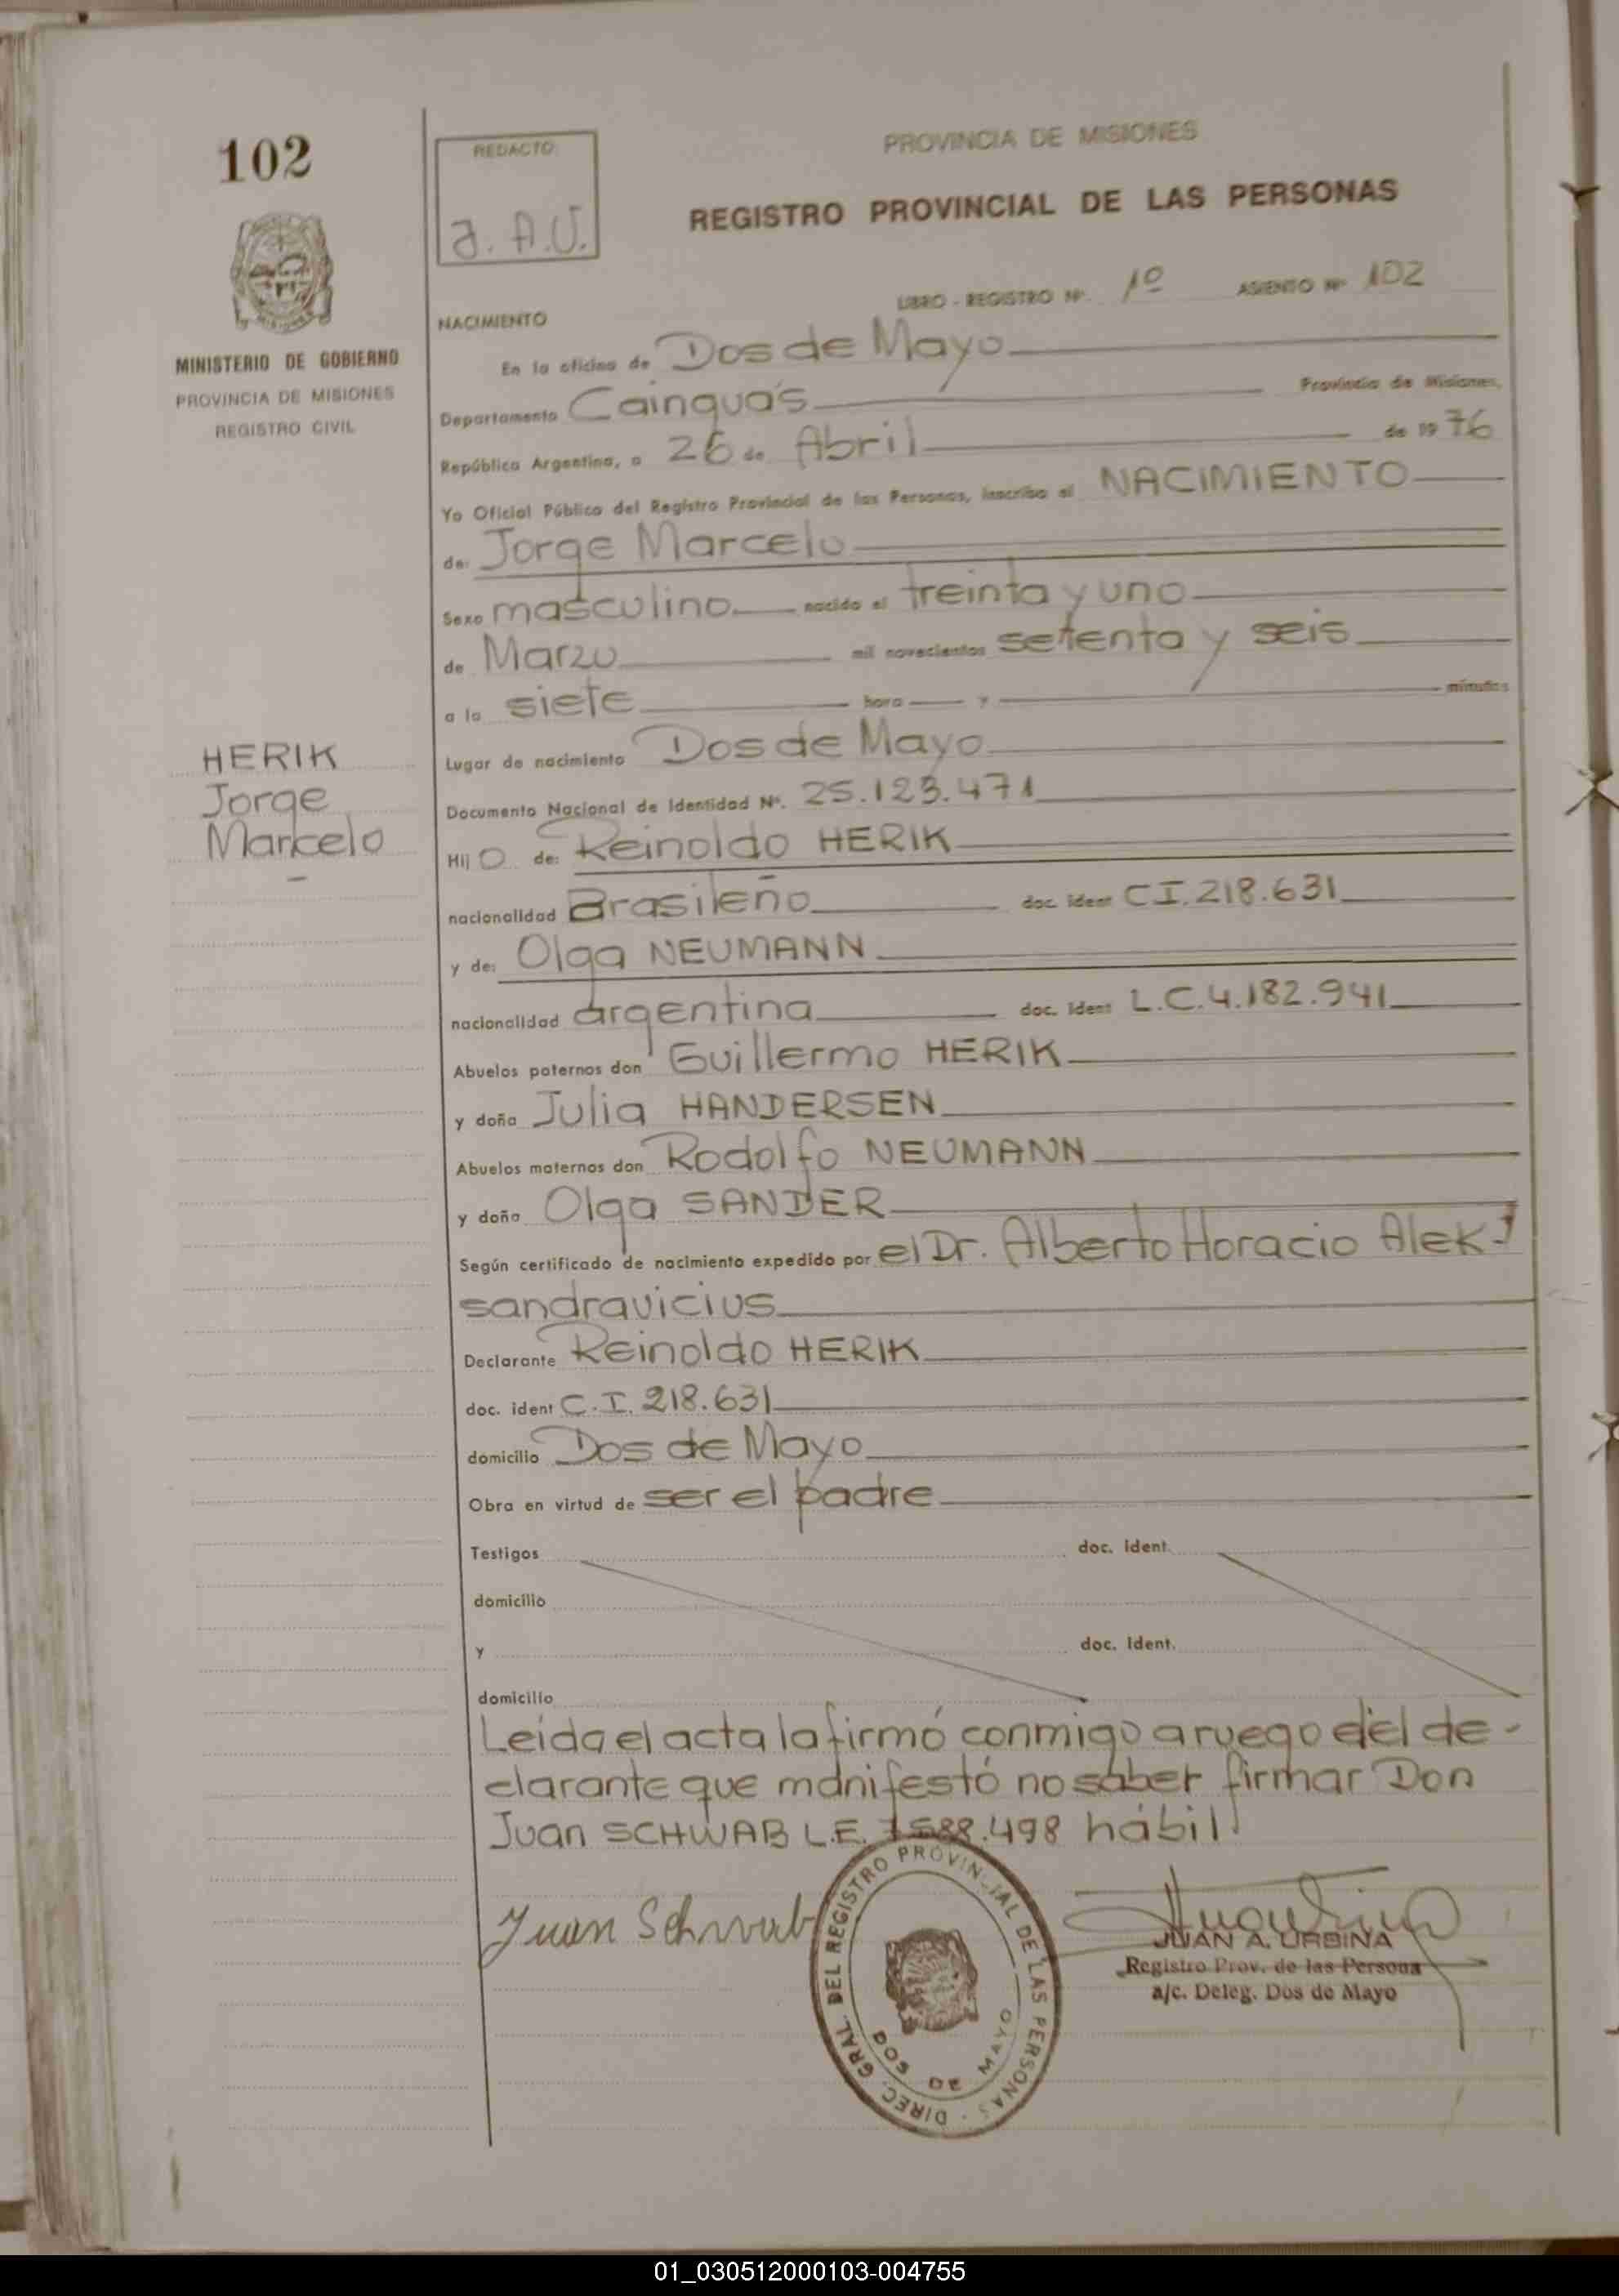 102
REDACTO:
J. A.U.
PROVINCIA DE MISIONES
REGISTRO PROVINCIAL DE LAS PERSONAS
LIBRO - REGISTRO Nº 1º ASIENTO Nº 102
MINISTERIO DE GOBIERNO
PROVINCIA DE MISIONES
REGISTRO CIVIL
NACIMIENTO
En la oficina de Dos de Mayo
Departamento Cainguás Provincia de Misiones,
República Argentina, a 26 de Abril de 1976
Yo Oficial Público del Registro Provincial de las Personas, inscribo el NACIMIENTO
de: Jorge Marcelo
Sexo masculino nacido el treinta y uno
de Marzo mil novecientos setenta y seis
a la siete hora y minutos
Lugar de nacimiento Dos de Mayo
HERIK
Jorge
Marcelo
Documento Nacional de Identidad Nº. 25.123.471
Hijo de: Reinoldo HERIK
nacionalidad Brasileño doc. ident CI. 218.631
y de: Olga NEUMANN
nacionalidad argentina doc. ident L.C. 4.182.941
Abuelos paternos don Guillermo HERIK
y doña Julia HANDERSEN
Abuelos maternos don Rodolfo NEUMANN
y doña Olga SANDER
Según certificado de nacimiento expedido por el Dr. Alberto Horacio Alek-
sandravicius
Declarante Reinoldo HERIK
doc. ident C.I. 218.631
domicilio Dos de Mayo
Obra en virtud de ser el padre
Testigos doc. ident.
domicilio
y doc. ident.
domicilio
Leída el acta la firmó conmigo a ruego del de-
clarante que manifestó no saber firmar Don
Juan SCHWAB L.E. 7588.498 hábil
Juan Schwab
DIREC. GRAL. DEL REGISTRO PROVINCIAL DE LAS PERSONAS
DOS DE MAYO
JUAN A. URBINA
Registro Prov. de las Persona
a/c. Deleg. Dos de Mayo
01_030512000103-004755